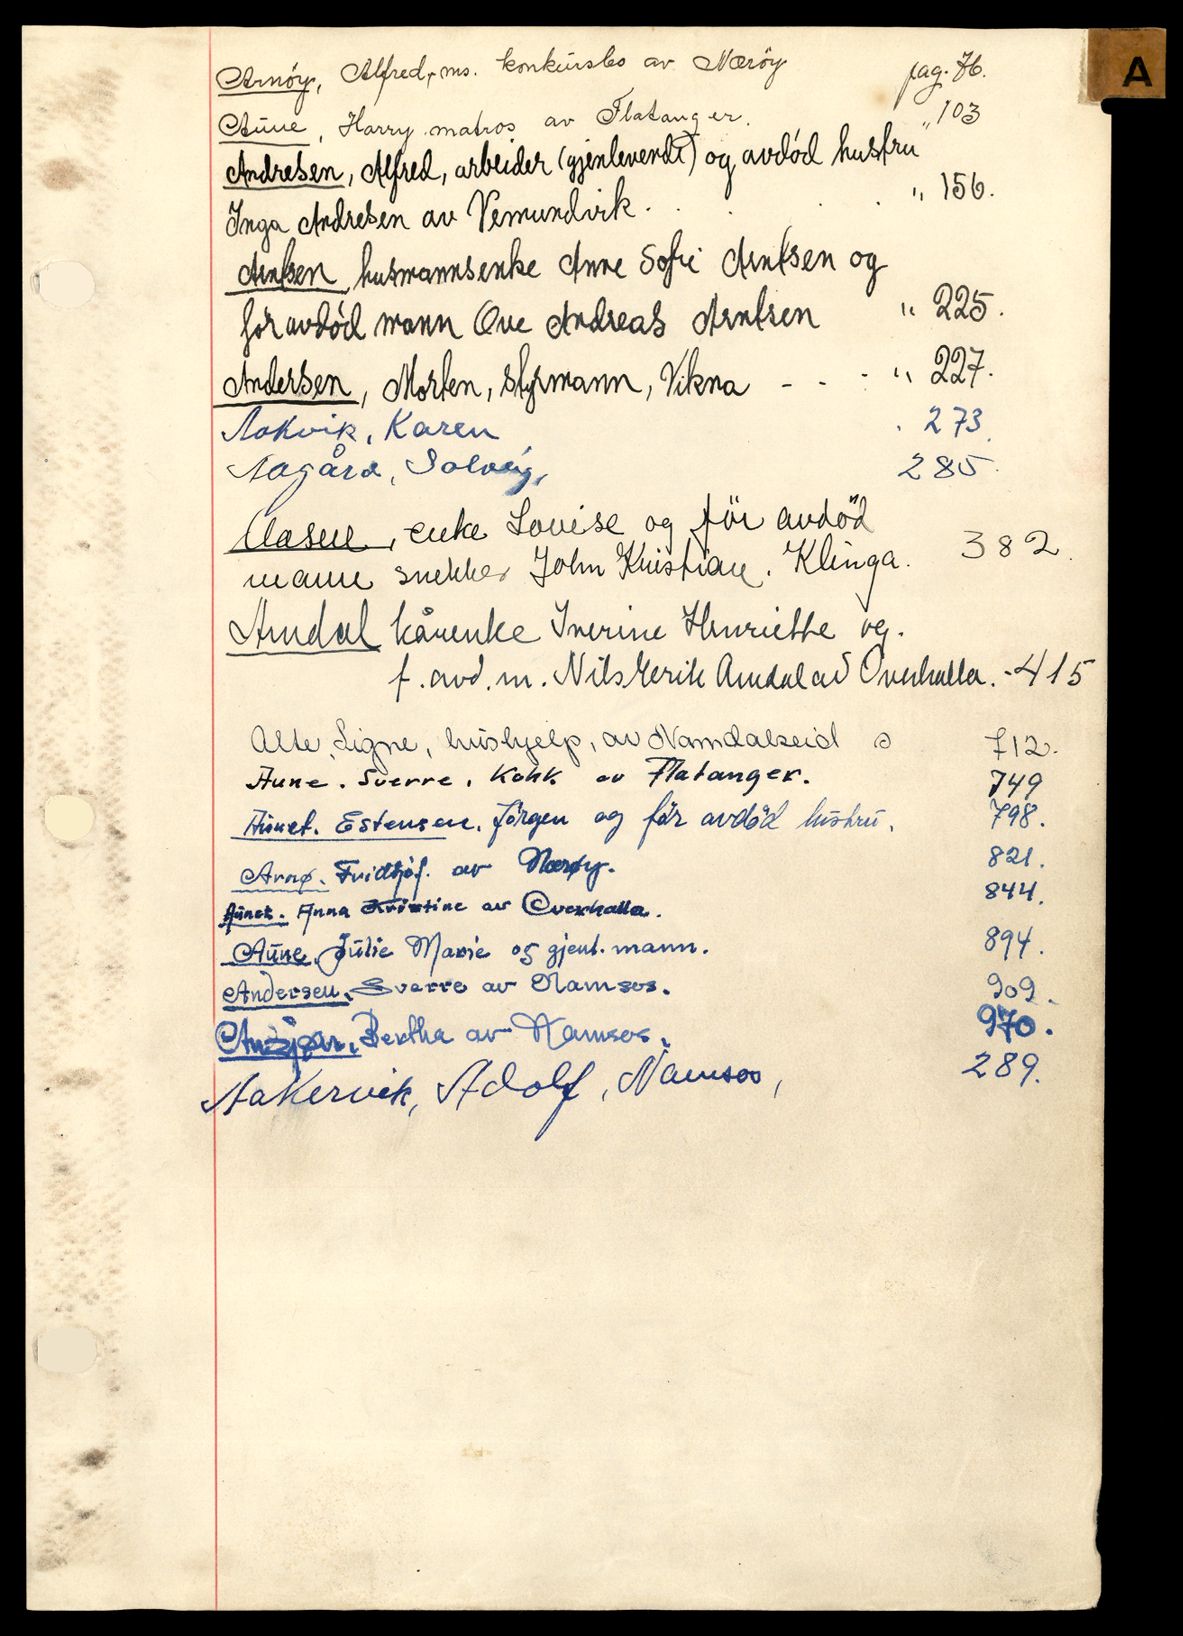 A
Arnöy, Alfred, ms. konkursbo av Nærøy pag. 76.
Aune, Harry matros av Flatanger. " 103
Andresen, Alfred, arbeider (gjenlevende) og avdöd hustru
Inga Andresen av Vemundvik. . . . " 156.
Arntsen, husmannsenke Anne Sofie Arntsen og
før avdöd mann Ove Andreas Arntsen " 225.
Andersen, Morten, styrmann, Vikna - - - " 227.
Aakvik, Karen . 273.
Aagård, Solveig, 285.
Aasen, enke Lovise og för avdöd
mann snekker John Kristian. Klinga. 382.
Amdal kårenke Iverine Henriette og.
f. avd. m. Nils Gerik Amdal av Overhalla. - 415
Alte, Signe, hushjelp, av Namdalseid 712.
Aune. Sverre. Kokk av Flatanger. 749
Aunet. Estensen. Jörgen og för avdöd hustru. 798.
Arnø. Fridtjof. av Nærøy. 821.
Aunet. Anna Kristine av Overhalla. 844.
Aune, Julie Marie og gjenl. mann. 894.
Andersen, Sverre av Namsos. 909.
Bertha av Namsos. 970.
Aakervik, Adolf, Namsos, 289.